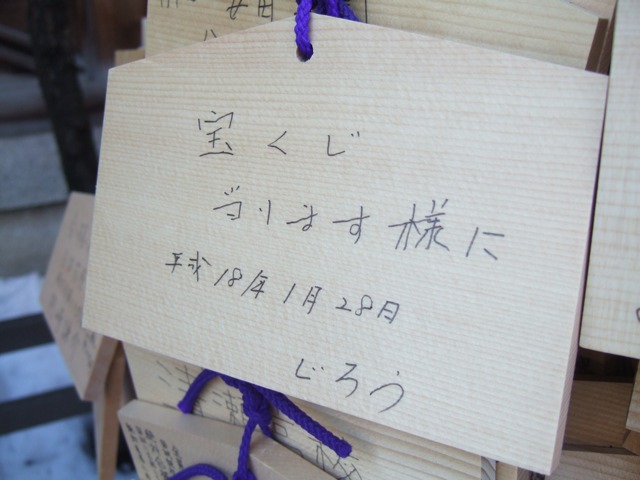 宝くじ
当ります様に
平成18年1月28日
じろう